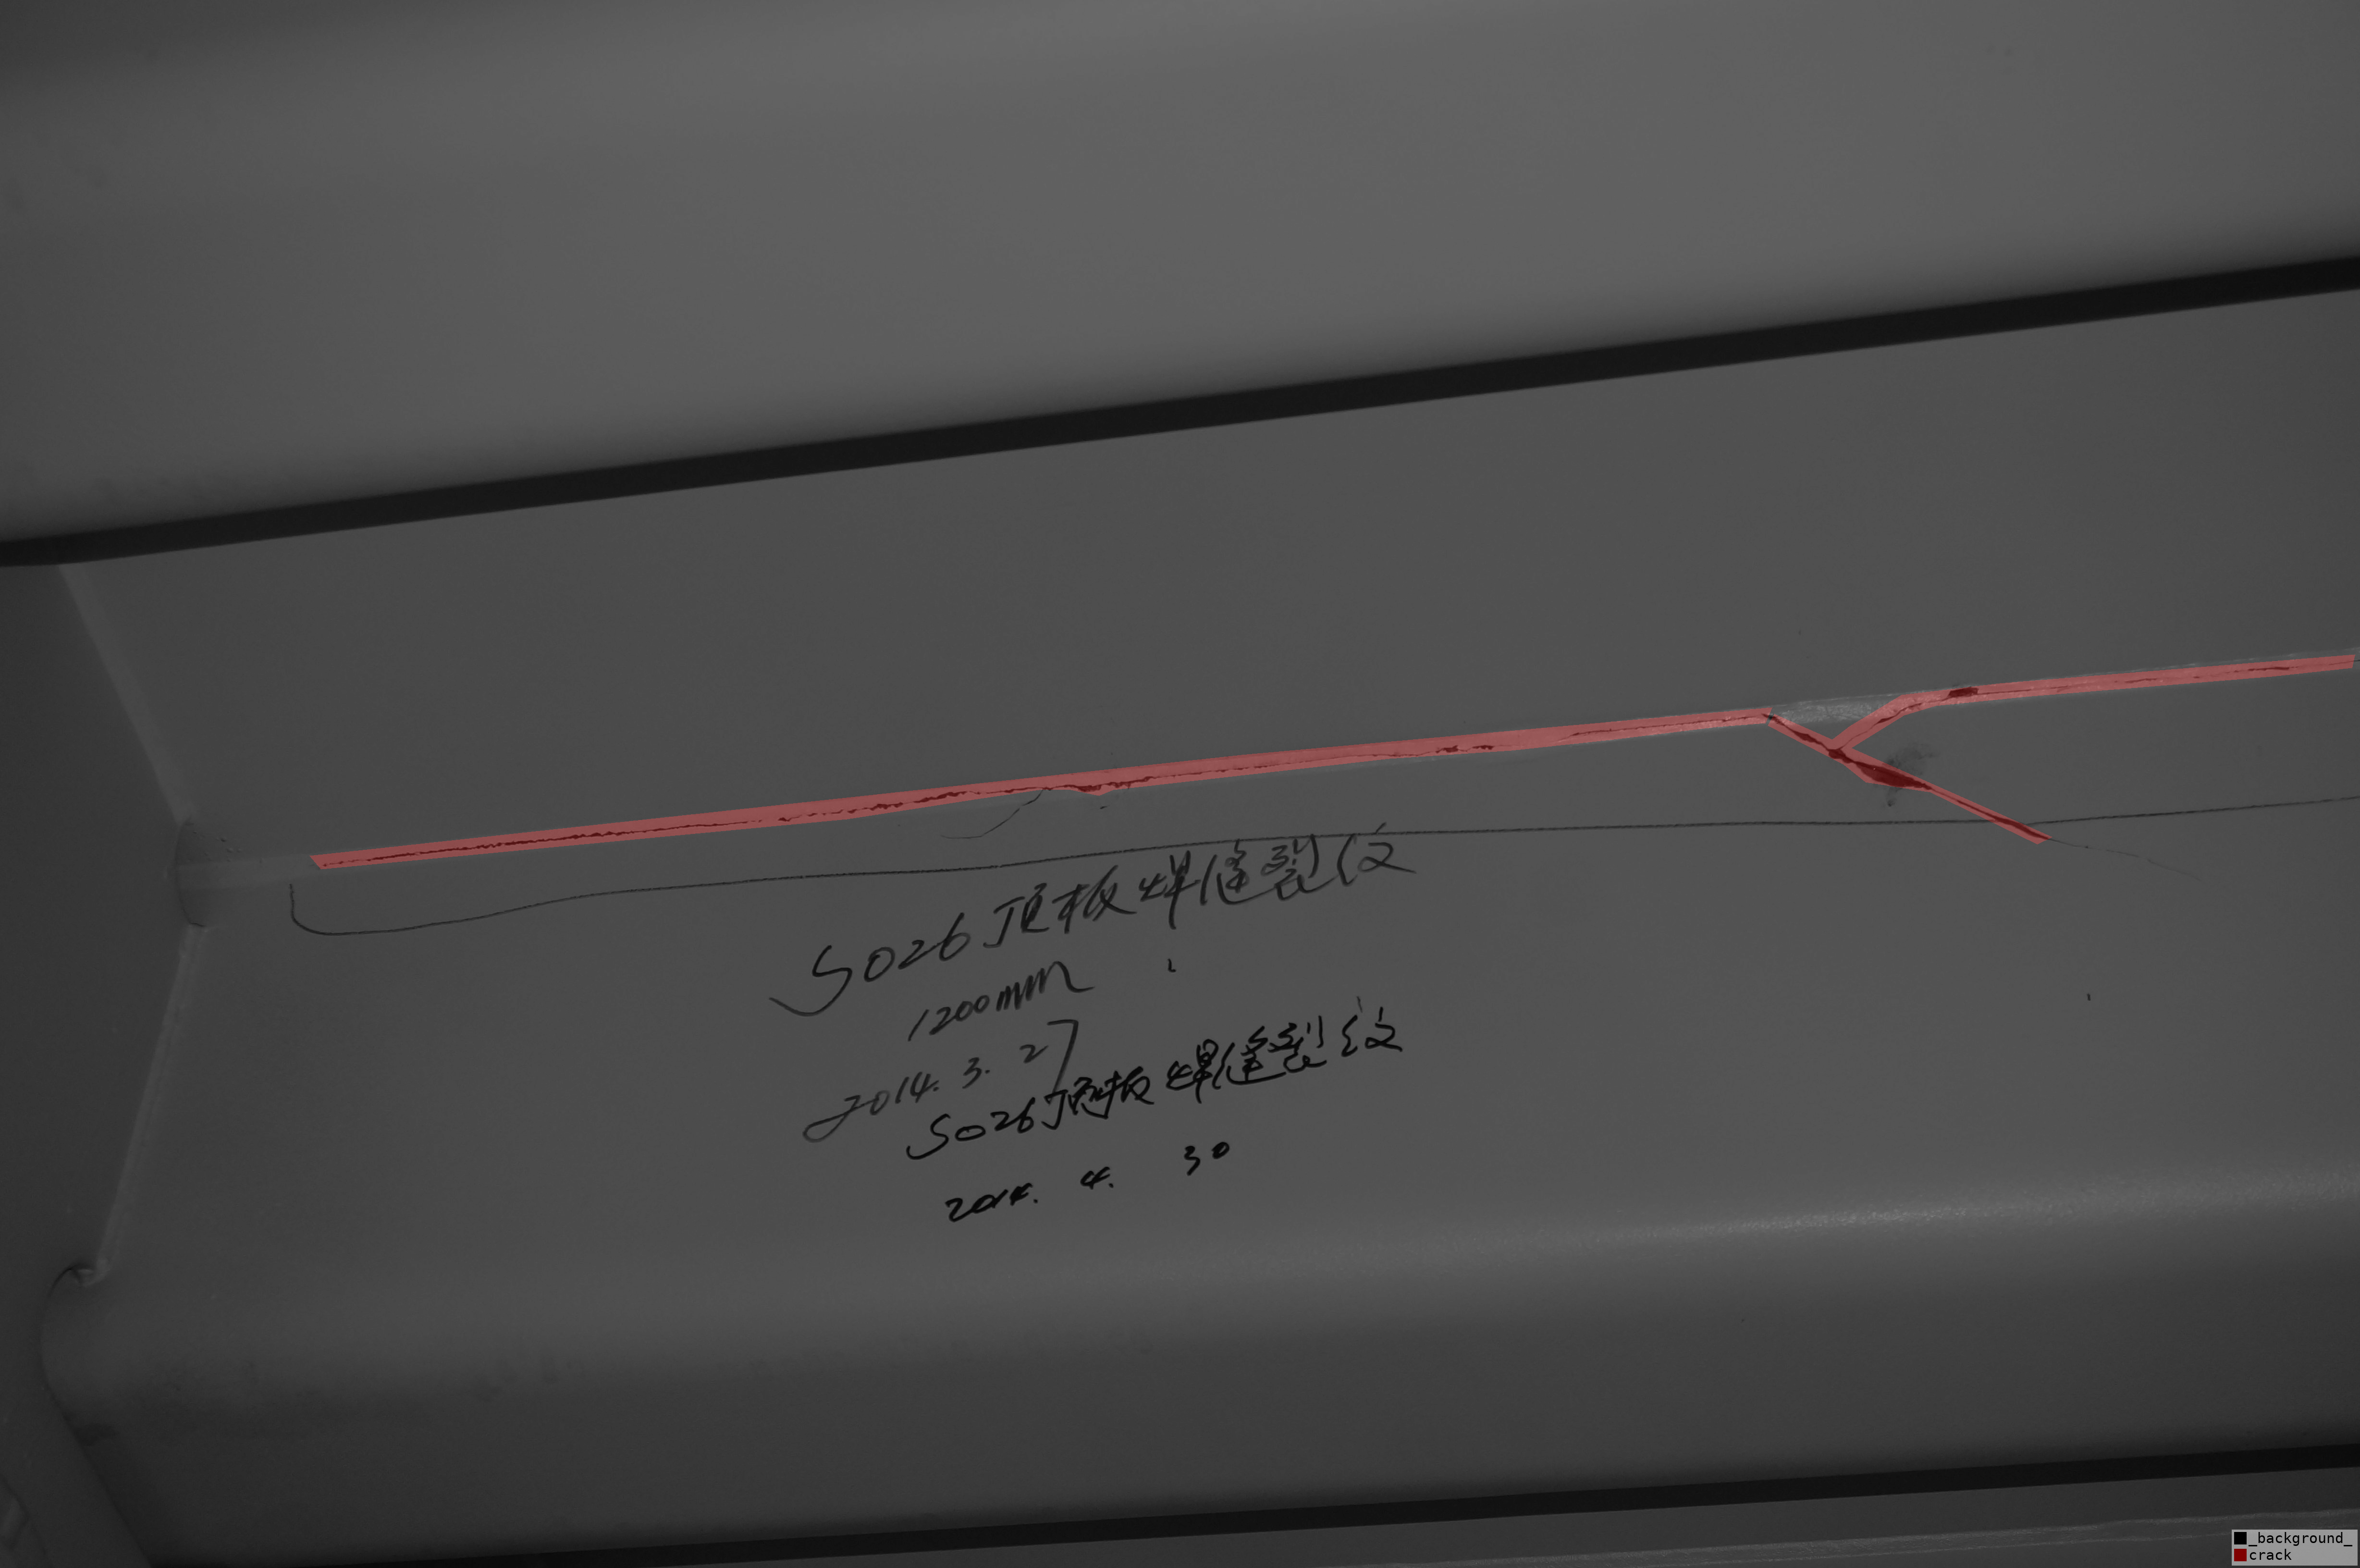 S026顶板焊缝裂纹
1200mm
2014. 3. 27
S026顶板焊缝裂纹
2014. 4. 30
_background_
crack